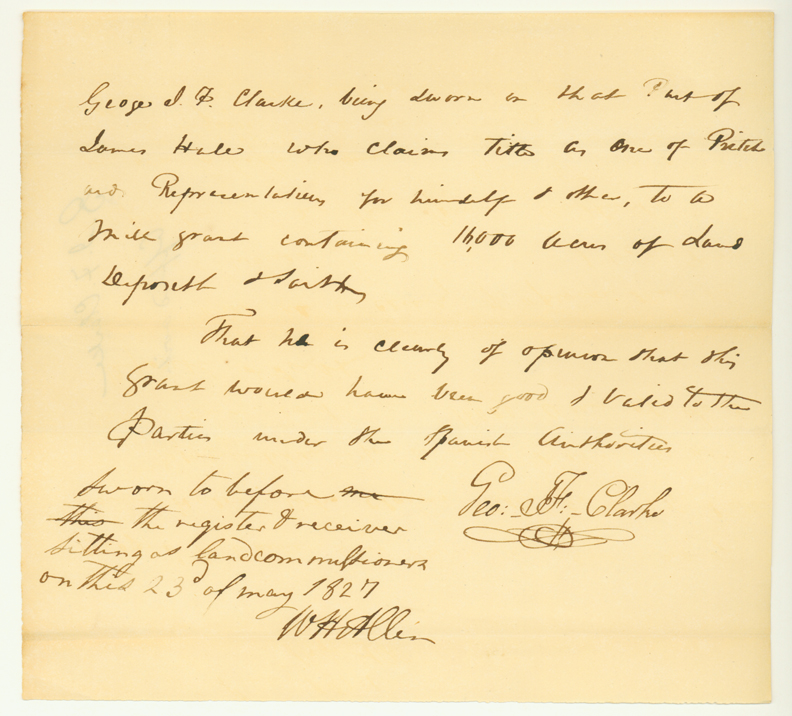 Geoge J. F. Clarke, being sworn on that Part of
James Hall who claims title as one of
and Representatives for himself & other, to a
Mill grant containing 16,000 Acres of Land
Deposeth & Saith
That he is clearly of opinion that this
grant would have been good & Valid to the
Parties under the Spanish Authorities
Sworn to before me
this the register & receiver
sitting as land commissioners
on this 23d of may 1827
Geo: J. F: Clarke
W H Allen